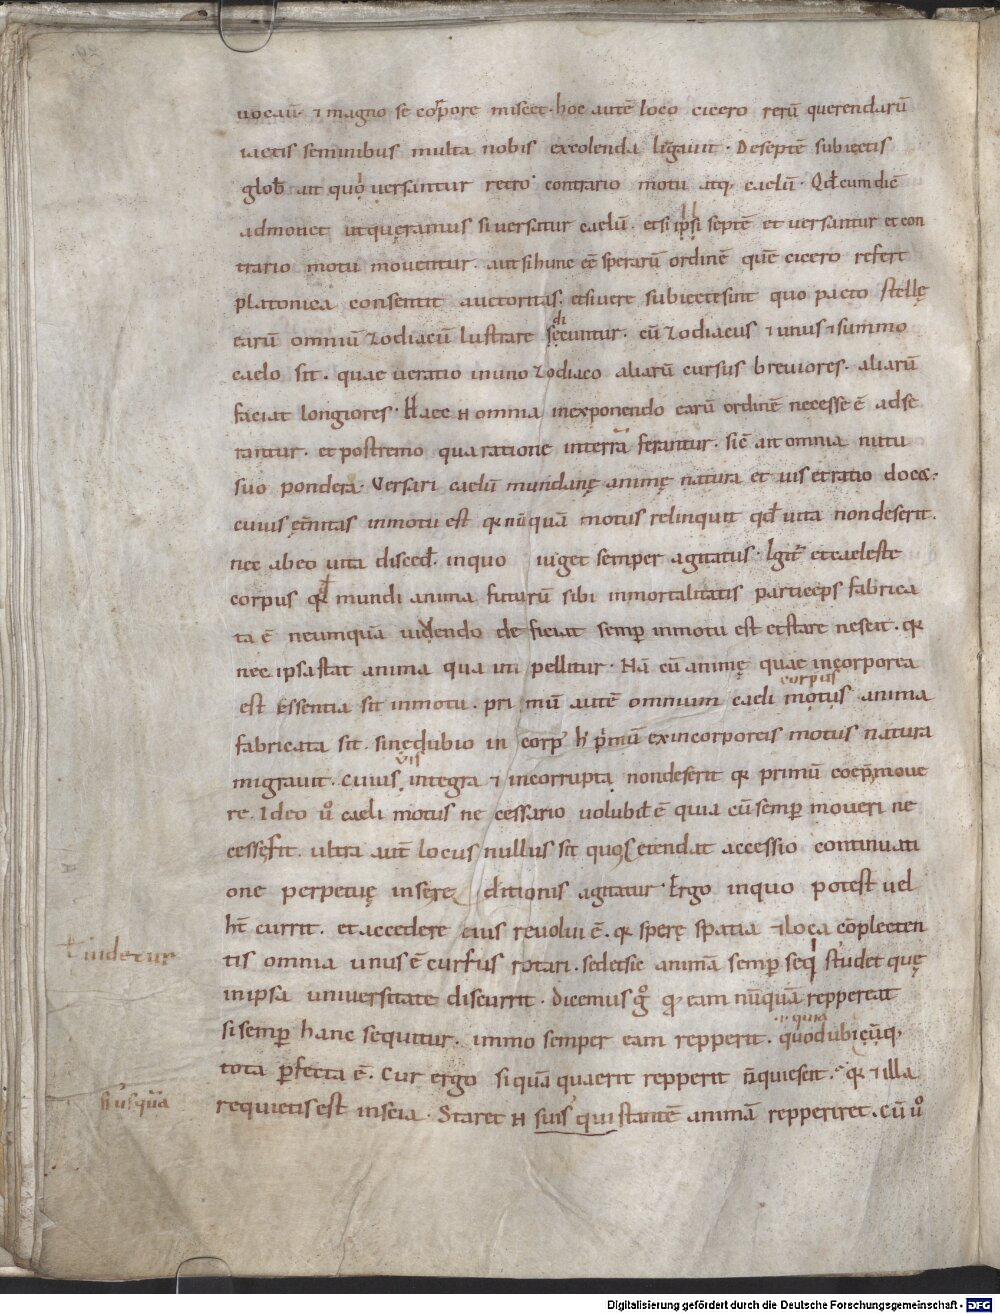 uocaũ. ⁊ magno se corpore miscet. hoc autẽ loco cicero rerũ querendarũ
iactis seminibus multa nobis excolenda legauit. De septẽ subiectis
glob̃ ait quo uersantur retro contrario motu atq; caelũ. Qđ cum dic̃
admonet ut quęramus si uersatur caelũ. et si ipsi septẽ et uersantur et con
trario motu mouentur. aut si hunc eẽ sperarũ ordinẽ quẽ cicero refert
platonica consentit auctoritas. et si uere subiecte sint quo pacto stellę
earũ omniũ zodiacũ lustrare dicuntur. cũ zodiacus ⁊ unus ⁊ summo
caelo sit. quae ue ratio in uno zodiaco aliarũ cursus breuiores. aliarũ
faciat longiores. Haec N omnia in exponendo earũ ordinẽ necesse ẽ adse
rantur. et postremo qua ratione in terrã ferantur. sic̃ ait omnia nutu
suo pondera. Versari caelũ mundanę animę natura et uis et ratio docet.
cuius ęt̃nitas in motu est qr nũquã motus relinquit qđ uita non deserit.
nec ab eo uita disced̃. in quo uiget semper agitatus. Igit̃ et caeleste
corpus qđ mundi anima futurũ sibi inmortalitatis particeps fabrica
ta ẽ ne umquã uiuendo deficiat semp̱ in motu est et stare nescit. qr
nec ipsa stat anima qua in pellitur. Nã cũ animę quae incorporea
est Essentia sit in motu. primũ autẽ omnium caeli motus anima
corpus
fabricata sit. sinedubio in corp̃ h p̃mũ ex incorporeis motus natura
migrauit. cuius integra ⁊ incorrupta non deserit qr primũ coep̃ moue
uis
re. Ideo ů caeli motus necessario uolubiĺ ẽ quia cũ semp̱ moueri ne
cesse sit. ultra aut̃ locus nullus sit quo se tendat accessio continuati
one perpetuę in se reditionis agitatur. Ergo in quo potest uel
ht̃ currit. et accedere eius reuolui ẽ. qr sperę spatia ⁊ loca cõplecten
tis omnia unus ẽ cursus rotari. sed et sic animã semp̱ sequi studet quę
uidetur
in ipsa uniuersitate discurrit. Dicemus g̊ qđ eam nũquã reppereat
si semp̱ hanc sequitur. immo semper eam repperit. quo d ubicũq;
quia
tota p̱fecta ẽ. Cur ergo si quã quaerit repperit ñ quiescit. qr ⁊ illa
requietis est inscia. Staret N si usqui stantẽ animã repperiret. Cũ ů
si usquã